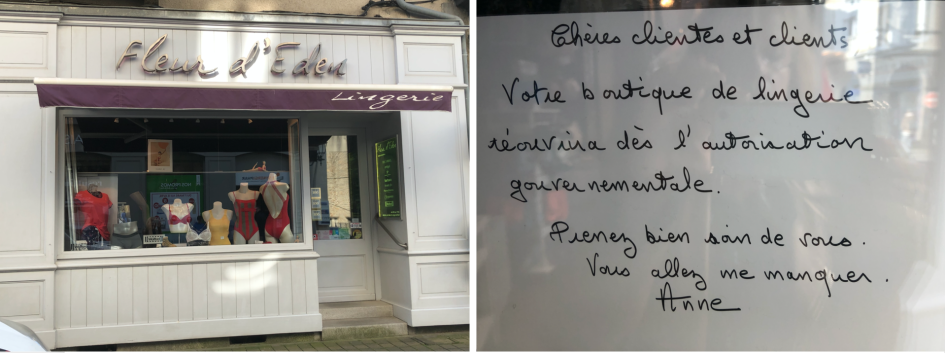 Fleur d'Eden
Lingerie
Chères clientes et clients
Votre boutique de lingerie
réouvrira dès l'autorisation
gouvernementale.
Prenez bien soin de vous.
Vous allez me manquer.
Anne